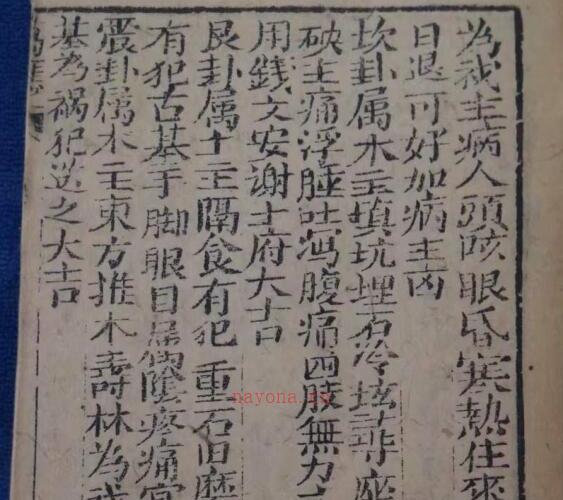 為戎主病人頭咳眼昏寒熱住來
日退可好如病主凶
坎卦属水主填坑埋石冷坟
砍主痛浮腫吐瀉腹痛四肢無力
用錢文安謝土府大吉
艮卦属土主隔食有犯 重石旧磨
有犯古基于脚眼目屬陰疼痛宮
震卦属木主東方推木壽林為戎
基為禍犯送之大吉
nayona.cn